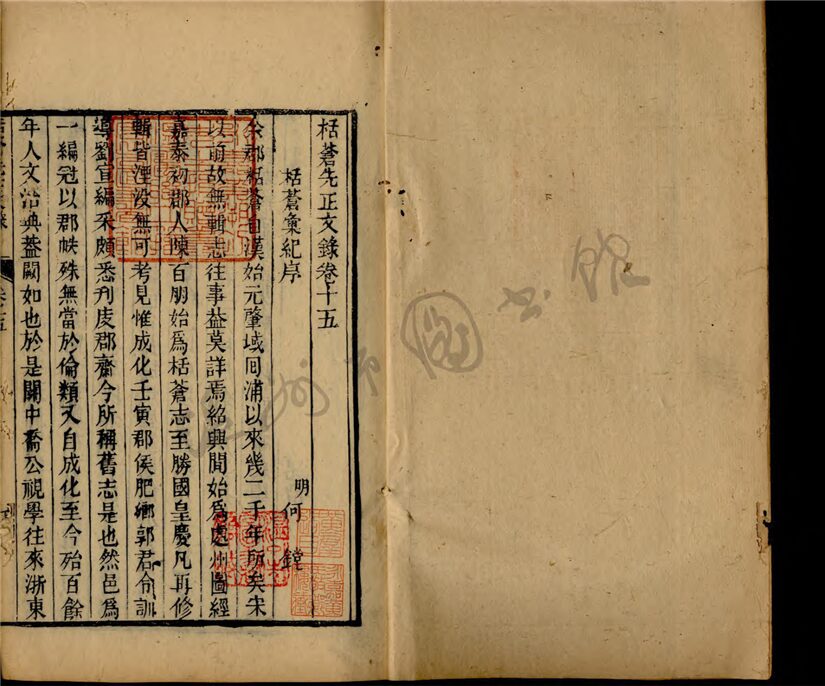 栝蒼先正文錄卷十五
栝蒼彙紀序
明何鏜
余郡栝蒼自漢始元肇域囘浦以來幾二千年所矣宋
以前故無輯志往事益莫詳焉紹興間始爲處州圖經
嘉泰初郡人陳百朋始爲栝蒼志至勝國皇慶凡再修
輯皆湮没無可考見惟成化壬寅郡侯肥鄉郭君令訓
導劉宣編釆頗悉刊庋郡齋今所稱舊志是也然邑爲
一編冠以郡帙殊無當於倫類又自成化至今殆百餘
年人文治典葢闕如也於是關中喬公視學往來浙東
州市圖书館